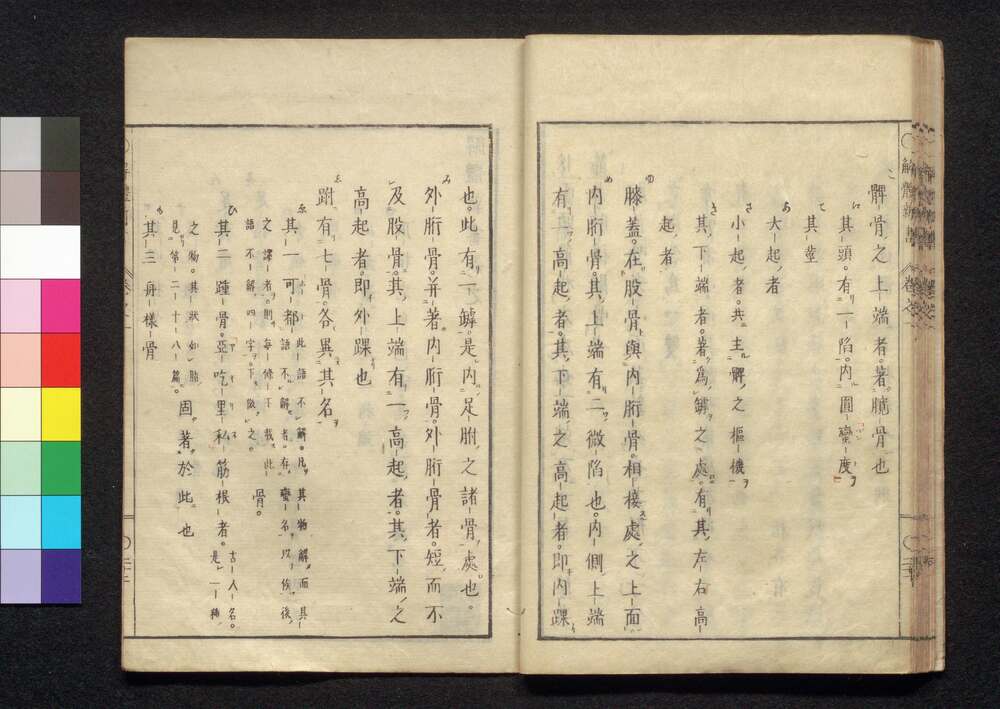 髀骨之上端者著臗骨也
其頭有一陷内圓蠻度
其莖
大起者
小起者共主髀之樞機
其下端者著爲罅之處有其左右高
起者
膝蓋在股骨與内䯒骨相接處之上面
内䯒骨其上端有二微陷也内側上端
有一高起者其下端之高起者即内踝
也此有一罅是内足胕之諸骨處也
外䯒骨并著内䯒骨外䯒骨者短而不
及股骨其上端有一高起者其下端之
高起者即外踝也
跗有七骨各異其名
其一可都骨
此語不解凡其物解而其
語不解者存蠻名以俟後
之譯者則毎條下載此
語不解四字下倣之
其二踵骨亞吃里私筋根者固著於此也
古人名
是一種
之腸其狀如腸
見第二十八篇
其三舟樣骨
解體新書